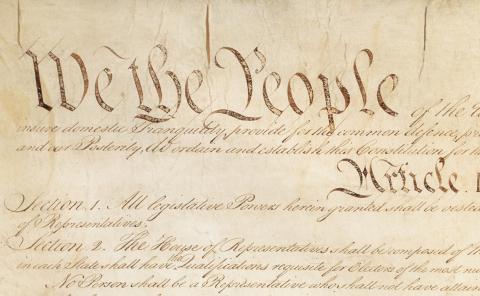 We the People of the U
insure domestic Tranquility, provide for the common defence, pro
and our Posterity, do ordain and establish this Constitution for th
Article. I
Section. 1. All legislative Powers herein granted shall be vested
of Representatives.
Section. 2. The House of Representatives shall be composed of M
in each State shall have the Qualifications requisite for Electors of the most nu
No Person shall be a Representative who shall not have attain